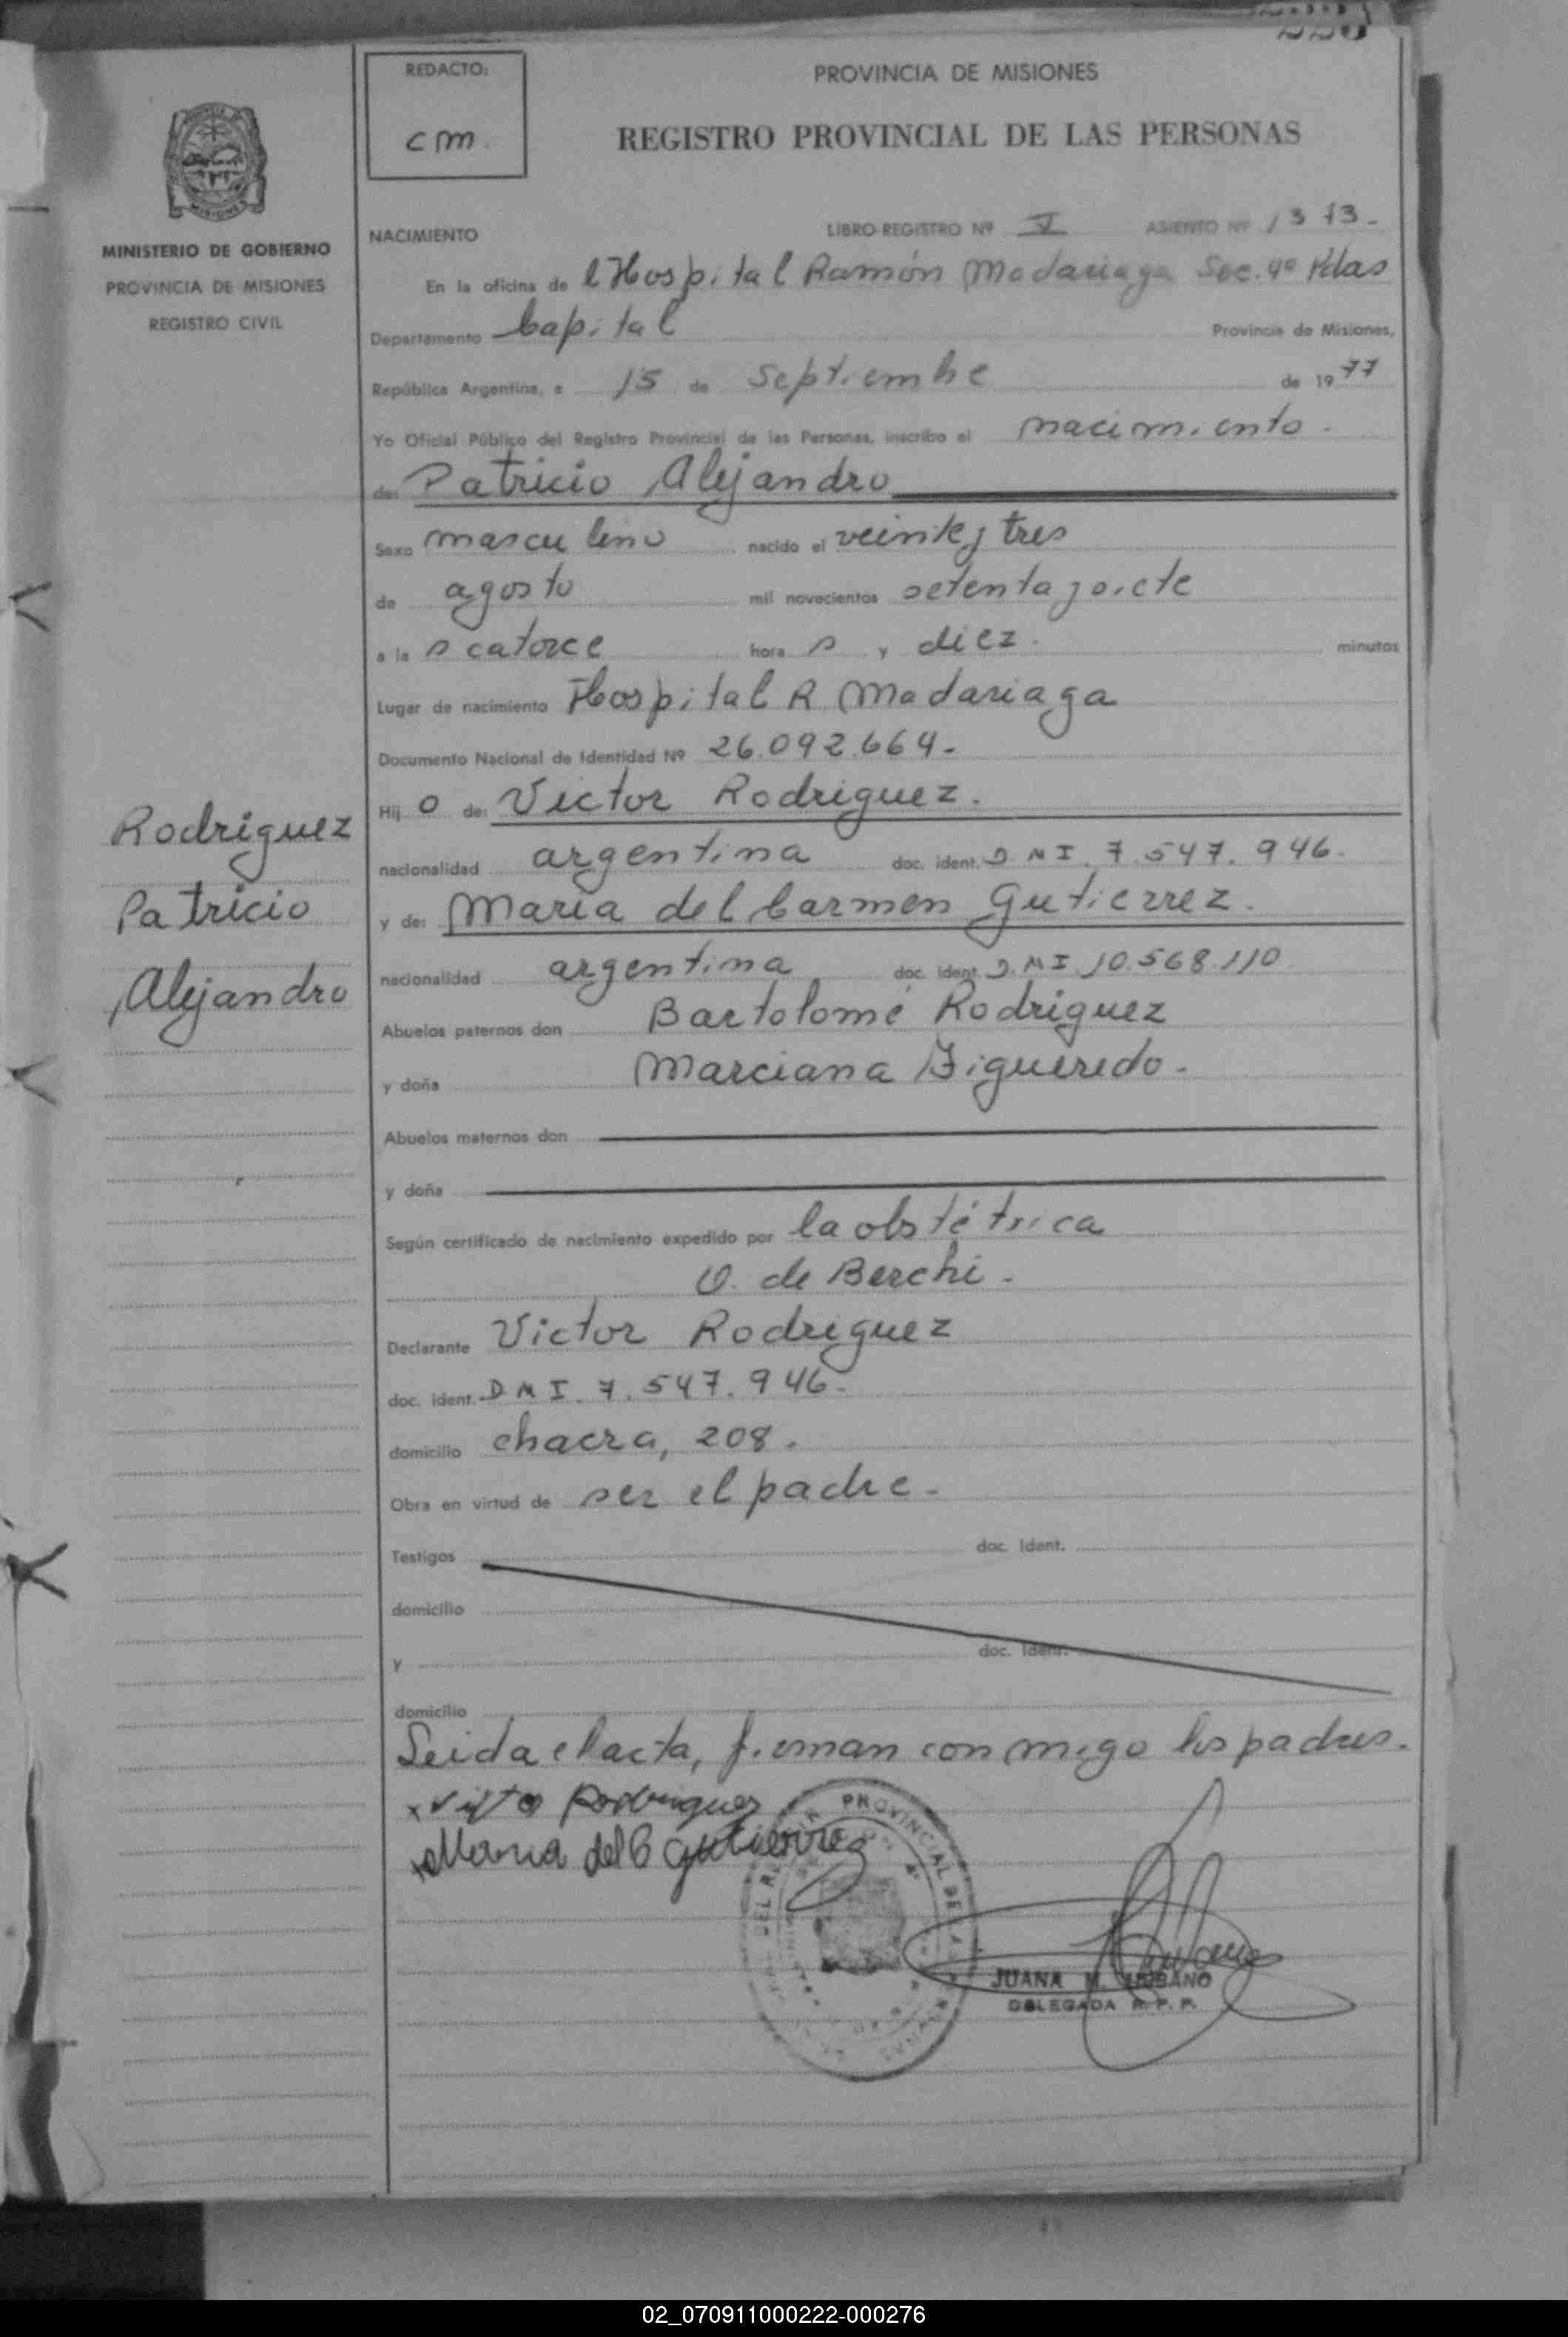 REDACTO:
cm.
PROVINCIA DE MISIONES
REGISTRO PROVINCIAL DE LAS PERSONAS
MISIONES
MINISTERIO DE GOBIERNO
PROVINCIA DE MISIONES
REGISTRO CIVIL
NACIMIENTO LIBRO-REGISTRO Nº V ASIENTO Nº 1313.-
En la oficina de l Hospital Ramón Madariaga Sec. 4º Pdas
Departamento Capital Provincia de Misiones,
República Argentina, a 15 de Septiembre de 1977
Yo Oficial Público del Registro Provincial de las Personas, inscribo el nacimiento.
de: Patricio Alejandro
Sexo masculino nacido el veintey tres
de agosto mil novecientos setenta y siete
a la s catorce hora s y diez. minutos
Lugar de nacimiento Hospital R Madariaga
Documento Nacional de Identidad Nº 26.092.664.-
Hij o de: Victor Rodriguez.
nacionalidad argentina doc. ident. D N I. 7.547.946.
y de: Maria del Carmen Gutierrez.
nacionalidad argentina doc. ident. D.N I. 10.568.110
Abuelos paternos don Bartolomé Rodriguez
y doña Marciana Figueredo.
Abuelos maternos don
y doña
Según certificado de nacimiento expedido por la obstétrica
O. de Berchi.
Declarante Victor Rodriguez
doc. ident. D N I. 7.547.946.
domicilio chacra, 208.
Obra en virtud de ser el padre.
Testigos doc. Ident.
domicilio
y doc. Ident.
domicilio
Leida el acta, firman con migo los padres.
x Victo Rodriguez
x Maria del C Gutierrez
JUANA M. URBANO
DELEGADA R. P. P.
Rodriguez
Patricio
Alejandro
02_070911000222-000276